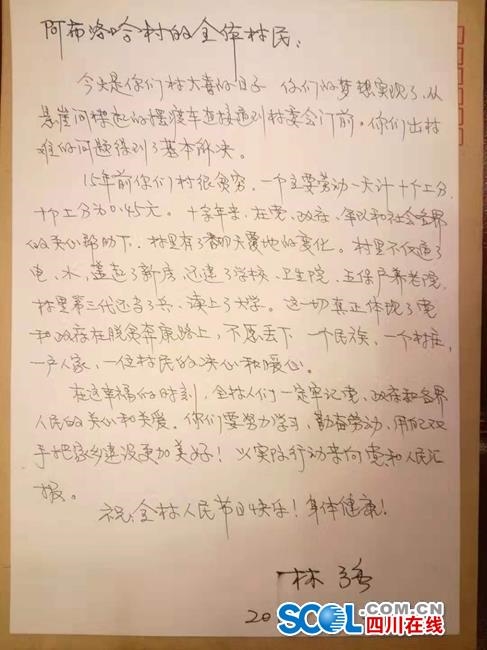 阿布洛哈村的全体村民：
今天是你们村大喜的日子 你们的梦想实现了，从
悬崖间架起的摆渡车直接通到村委会门前，你们出村
难的问题得到了基本解决。
15年前你们村很贫穷，一个主要劳动一天计十个工分，
十个工分为0.45元。十余年来，在党、政府、军队和社会各界
的关心帮助下，村里有了翻天覆地的变化。村里不仅通了
电、水，盖起了新房，还建了学校、卫生院、五保户养老院，
村里第三代还当了兵、读上了大学。这一切真正体现了党
和政府在脱贫奔康路上，不愿丢下一个民族，一个村庄，
一户人家，一位村民的决心和暖心。
在这幸福的时刻，全村人们一定牢记党、政府和各界
人民的关心和关爱。你们要努力学习，勤奋劳动，用自己双
手把家乡建设更加美好！以实际行动来向党和人民汇
报。
祝全村人民节日快乐！身体健康！
林强
20
SCOL.COM.CN
四川在线